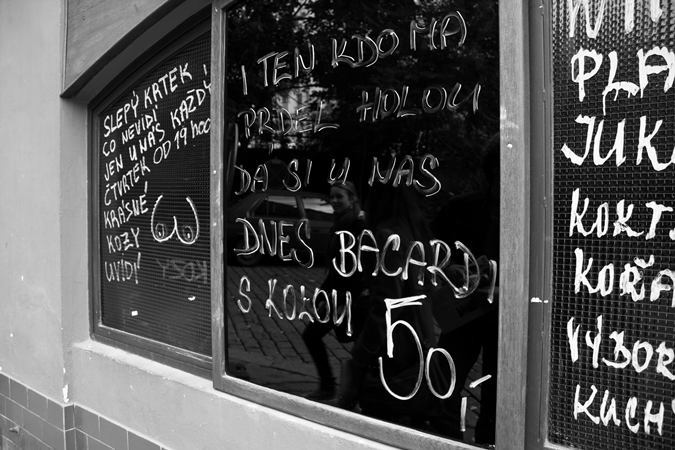 SLEPÝ KRTEK
CO NEVIDÍ
JEN U NÁS KAŽDÝ
ČTVRTEK OD 19 hod
KRÁSNÉ
KOZY
UVIDÍ!
I TEN KDO MÁ
PRDEL HOLOU
DÁ SI U NÁS
DNES BACARDI
S KOLOU
50,-
PLA
JUK
KOKT
KOŘA
VÝBOR
KUCHY